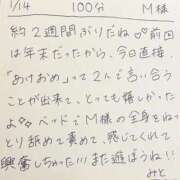 1/14 100分 M様
約2週間ぶりだね♡前回
は年末だったから、今日直接、
「あけおめ」って2人で言い合う
ことが出来て、とっても嬉しかった
よ♡♡ベッドでM様の全身をねっ
とり舐めて責めて、感じてくれて
興奮しちゃった!!!また遊ぼうね!!
みと